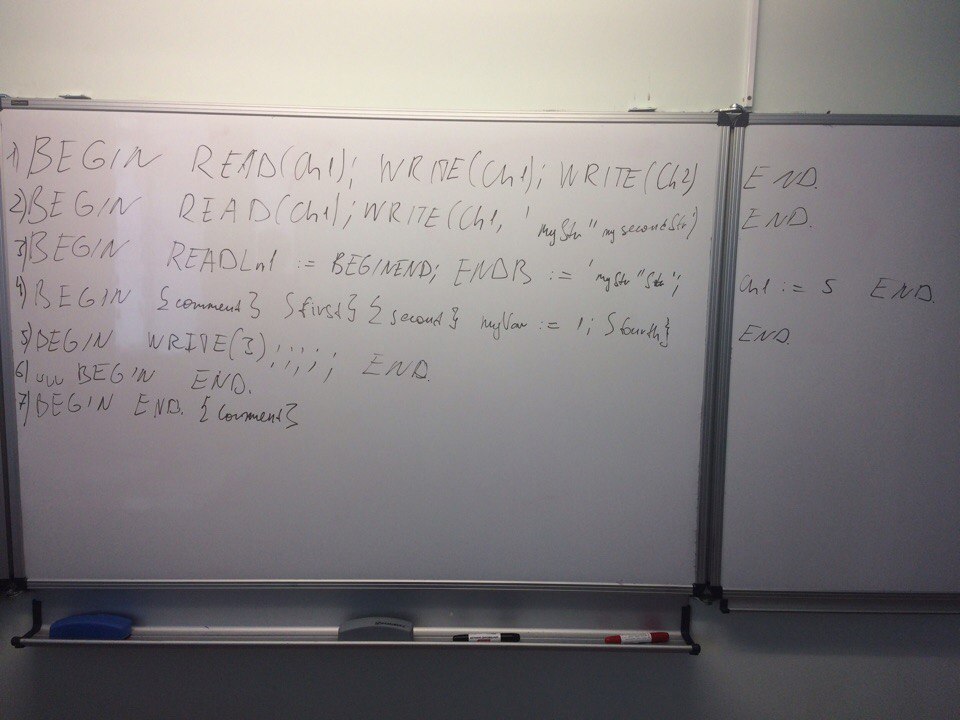 1) BEGIN READ(Ch1); WRITE(Ch1); WRITE(Ch2) END.
2) BEGIN READ(Ch1); WRITE(Ch1, 'myStr''mysecondStr') END.
3) BEGIN READLn1 := BEGINEND; ENDB := 'myStr''Str'; Ch1 := 5 END.
4) BEGIN {comment} {first} {second} myVar := 1; {fourth} END.
5) BEGIN WRITE(3);;;;; END.
6) BEGIN END.
7) BEGIN END. {comment}